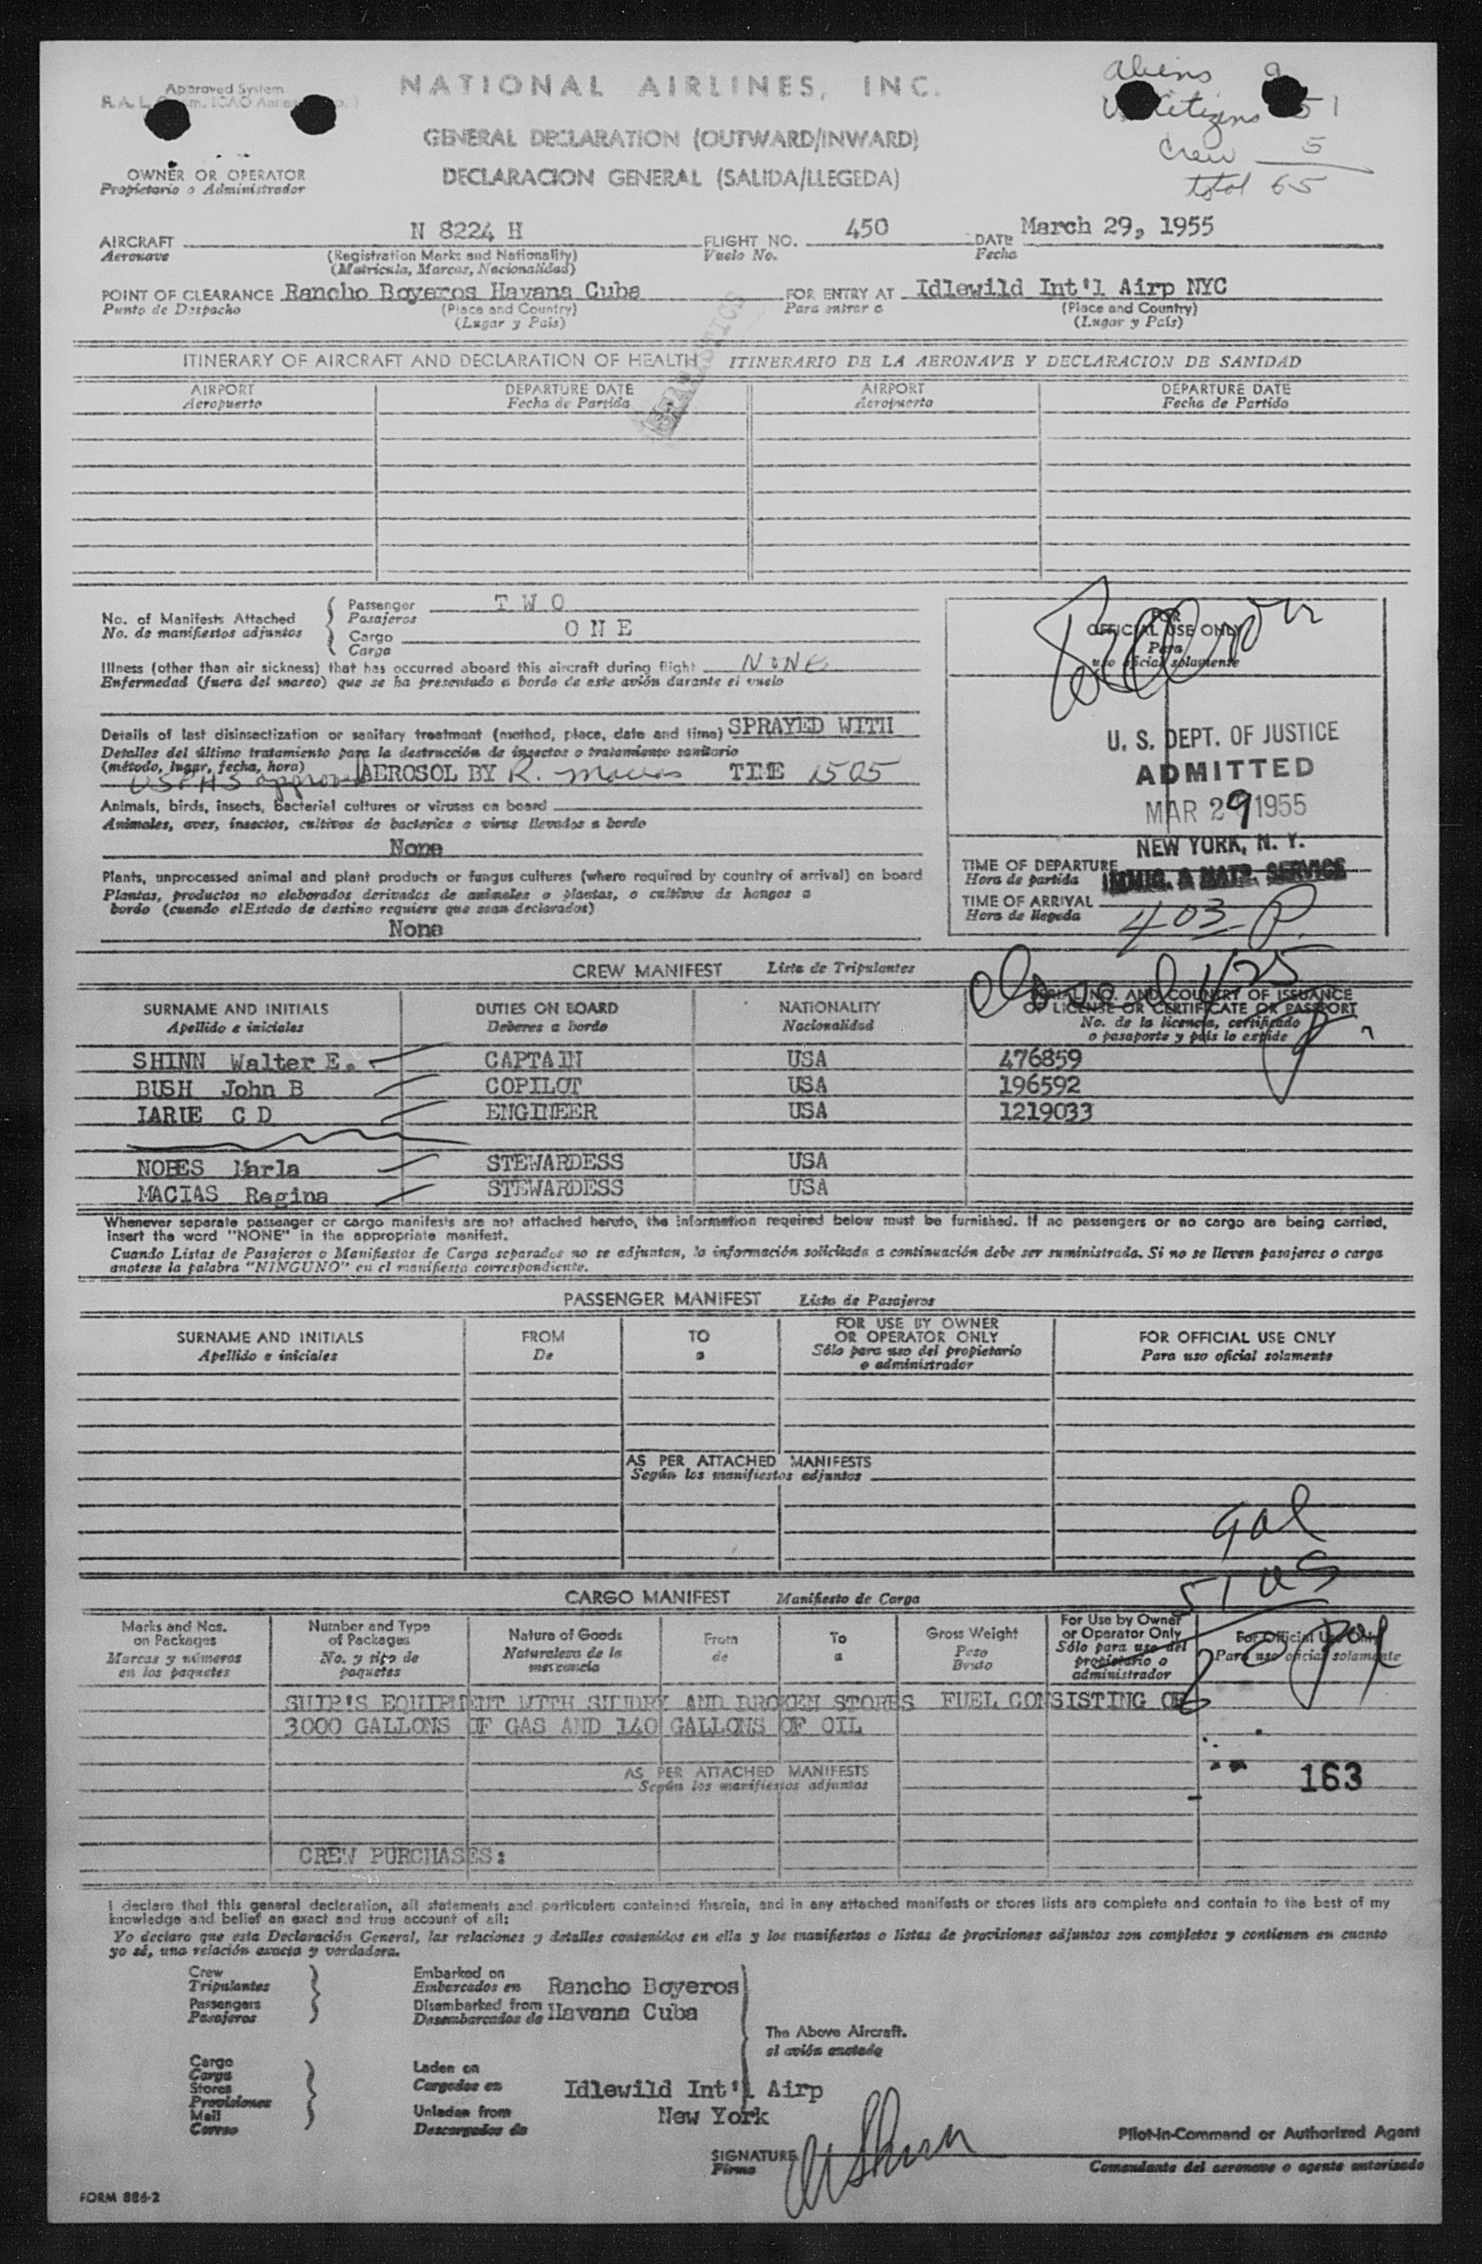 Approved System
NATIONAL AIRLINES, INC.
aliens 9
Citizens 51
Crew 5
total 65
GENERAL DECLARATION (OUTWARD/INWARD)
DECLARACION GENERAL (SALIDA/LLEGEDA)
OWNER OR OPERATOR
Propietario o Administrador
AIRCRAFT N 8224 H FLIGHT NO. 450 DATE March 29, 1955
Aeronave (Registration Marks and Nationality) Vuelo No. Fecha
(Matricula, Marcas, Nacionalidad)
POINT OF CLEARANCE Rancho Boyeros Havana Cuba FOR ENTRY AT Idlewild Int'l Airp NYC
Punto de Despacho (Place and Country) Para entrar a (Place and Country)
(Lugar y Pais) (Lugar y Pais)
STATISTICS
ITINERARY OF AIRCRAFT AND DECLARATION OF HEALTH ITINERARIO DE LA AERONAVE Y DECLARACION DE SANIDAD
AIRPORT DEPARTURE DATE AIRPORT DEPARTURE DATE
Aeropuerto Fecha de Partida Aeropuerto Fecha de Partida
No. of Manifests Attached Passenger TWO
No. de manifiestos adjuntos Pasajeros
Cargo ONE
Carga
Illness (other than air sickness) that has occurred aboard this aircraft during flight NONE
Enfermedad (fuera del mareo) que se ha presentado a bordo de este avión durante el vuelo
Details of last disinsectization or sanitary treatment (method, place, date and time) SPRAYED WITH
Detalles del último tratamiento para la destrucción de insectos o tratamiento sanitario
(método, lugar, fecha, hora)
USPHS approved AEROSOL BY R. Macias TIME 1505
Animals, birds, insects, bacterial cultures or viruses on board
Animales, aves, insectos, cultivos de bacterias o virus llevados a bordo
None
Plants, unprocessed animal and plant products or fungus cultures (where required by country of arrival) on board
Plantas, productos no elaborados derivados de animales o plantas, o cultivos de hongos a
bordo (cuando elEstado de destino requiere que sean declarados)
None
FOR
OFFICIAL USE ONLY
Para
uso oficial solamente
U. S. DEPT. OF JUSTICE
ADMITTED
MAR 29 1955
NEW YORK, N. Y.
IMMIG. & NATZ. SERVICE
TIME OF DEPARTURE
Hora de partida
TIME OF ARRIVAL 403 P.
Hora de llegada
CREW MANIFEST Lista de Tripulantes
SURNAME AND INITIALS DUTIES ON BOARD NATIONALITY SERIAL NO. AND COUNTRY OF ISSUANCE
OF LICENSE OR CERTIFICATE OR PASSPORT
Apellido e iniciales Deberes a bordo Nacionalidad No. de la licencia, certificado
o pasaporte y pais lo expide
SHINN Walter E. CAPTAIN USA 476859
BUSH John B COPILOT USA 196592
LARUE C D ENGINEER USA 1219033
NOBES Marla STEWARDESS USA
MACIAS Regina STEWARDESS USA
Whenever separate passenger or cargo manifests are not attached hereto, the information required below must be furnished. If no passengers or no cargo are being carried,
insert the word "NONE" in the appropriate manifest.
Cuando Listas de Pasajeros o Manifiestos de Carga separados no se adjuntan, la información solicitada a continuación debe ser suministrada. Si no se lleven pasajeros o carga
anotese la palabra "NINGUNO" en el manifiesto correspondiente.
PASSENGER MANIFEST Lista de Pasajeros
SURNAME AND INITIALS FROM TO FOR USE BY OWNER
OR OPERATOR ONLY FOR OFFICIAL USE ONLY
Apellido e iniciales De a Sólo para uso del propietario
o administrador Para uso oficial solamente
AS PER ATTACHED MANIFESTS
Según los manifiestos adjuntos
9al
51 US
60
CARGO MANIFEST Manifiesto de Carga
Marks and Nos.
on Packages
Marcas y números
en los paquetes
Number and Type
of Packages
No. y tipo de
paquetes
Nature of Goods
Naturaleza de la
mercancia
From
de
To
a
Gross Weight
Peso
Bruto
For Use by Owner
or Operator Only
Sólo para uso del
propietario o
administrador
For Official Use Only
Para uso oficial solamente
SHIP'S EQUIPMENT WITH SUNDRY AND BROKEN STORES FUEL CONSISTING OF
3000 GALLONS OF GAS AND 140 GALLONS OF OIL
AS PER ATTACHED MANIFESTS
Según los manifiestos adjuntos
163
CREW PURCHASES:
I declare that this general declaration, all statements and particulars contained therein, and in any attached manifests or stores lists are complete and contain to the best of my
knowledge and belief an exact and true account of all:
Yo declaro que esta Declaración General, las relaciones y detalles contenidos en ella y los manifiestos o listas de provisiones adjuntos son completos y contienen en cuanto
yo sé, una relación exacta y verdadera.
Crew
Tripulantes
Passengers
Pasajeros
Embarked on
Embarcados en Rancho Boyeros
Disembarked from
Desembarcados de Havana Cuba
The Above Aircraft.
el avión anotado
Cargo
Carga
Stores
Provisiones
Mail
Correo
Laden on
Cargados en Idlewild Int'l Airp
Unladen from New York
Descargados de
SIGNATURE W Shinn Pilot-in-Command or Authorized Agent
Firma Comandante del aeronave o agente autorizado
FORM 886-2